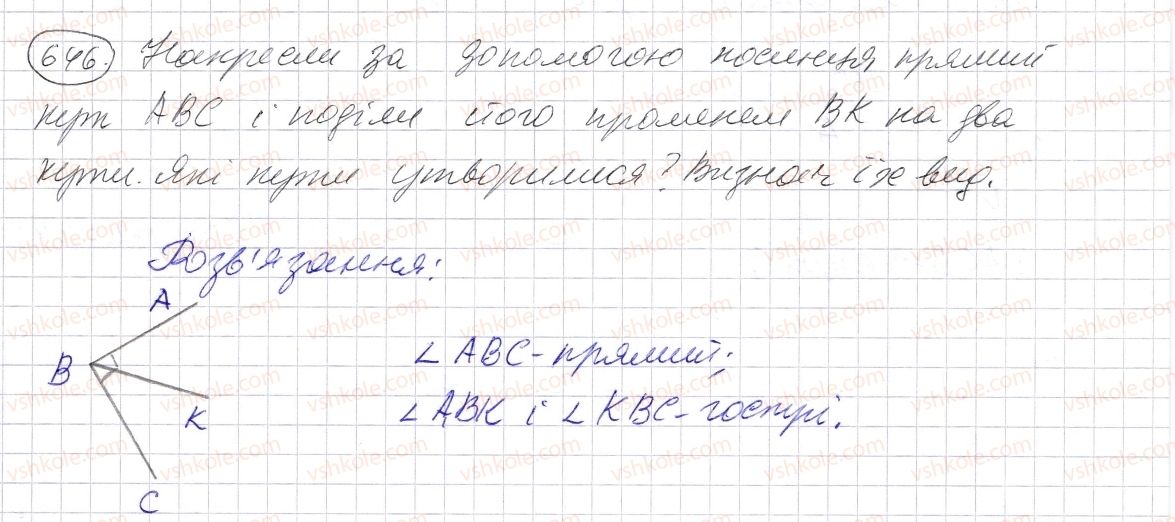 646. Накресли за допомогою косинця прямий
кут ABC і поділи його променем BK на два
кути. Які кути утворилися? Визнач їх вид.
Розв'язання:
A
B
K
C
∠ABC - прямий;
∠ABK і ∠KBC - гострі.
vshkole.com